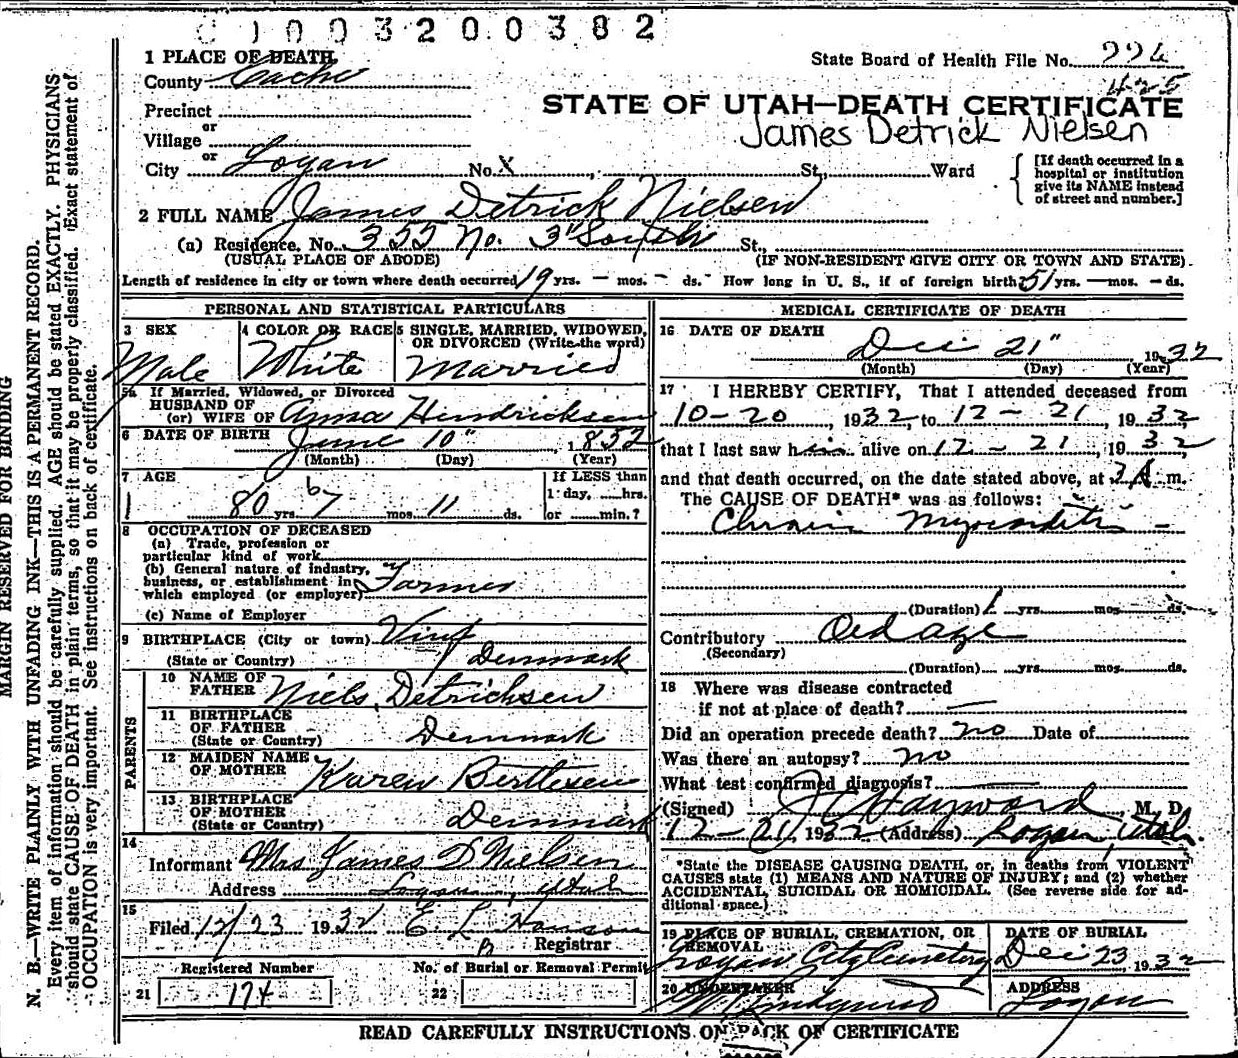 C 1 0 0 3 2 0 0 3 8 2
1 PLACE OF DEATH
County Cache
State Board of Health File No. 224
425
Precinct
or
Village
or
City Logan No. X St., Ward
STATE OF UTAH—DEATH CERTIFICATE
James Detrick Nielsen
[If death occurred in a hospital or institution give its NAME instead of street and number.]
2 FULL NAME James Detrick Nielsen
(a) Residence. No. 355 No. 3" South St.,
(USUAL PLACE OF ABODE) (IF NON-RESIDENT GIVE CITY OR TOWN AND STATE)
Length of residence in city or town where death occurred 19 yrs. — mos. - ds. How long in U. S., if of foreign birth? 51 yrs. — mos. — ds.
PERSONAL AND STATISTICAL PARTICULARS
3 SEX
Male
4 COLOR OR RACE
White
5 SINGLE, MARRIED, WIDOWED,
OR DIVORCED (Write the word)
Married
5a If Married, Widowed, or Divorced
HUSBAND OF
(or) WIFE OF Anna Hendricksen
6 DATE OF BIRTH June 10" 1852
(Month) (Day) (Year)
7 AGE
80 yrs. 6 mos. 11 ds.
If LESS than
1 day, hrs.
or min.?
8 OCCUPATION OF DECEASED
(a) Trade, profession or
particular kind of work
(b) General nature of industry,
business, or establishment in
which employed (or employer) Farmer
(c) Name of Employer
9 BIRTHPLACE (City or town)
(State or Country) Denmark
PARENTS
10 NAME OF
FATHER Niels Detricksen
11 BIRTHPLACE
OF FATHER
(State or Country) Denmark
12 MAIDEN NAME
OF MOTHER Karen Bertlesen
13 BIRTHPLACE
OF MOTHER
(State or Country) Denmark
14
Informant Mrs James D Nielsen
Address Logan, Utah
15
Filed 12/23 1932 E. L. Hanson
Registrar
Registered Number No. of Burial or Removal Permit
21 174 22
MEDICAL CERTIFICATE OF DEATH
16 DATE OF DEATH
Dec 21" 1932
(Month) (Day) (Year)
17 I HEREBY CERTIFY, That I attended deceased from
10-20, 1932, to 12-21, 1932,
that I last saw him alive on 12-21, 1932,
and that death occurred, on the date stated above, at 3 A m.
The CAUSE OF DEATH* was as follows:
Chronic Myocarditis —
(Duration) 1 yrs. mos. ds.
Contributory Old age
(Secondary)
(Duration) yrs. mos. ds.
18 Where was disease contracted
if not at place of death? —
Did an operation precede death? no Date of
Was there an autopsy? no
What test confirmed diagnosis? —
(Signed) J. C. Hayward M. D.
12-21, 1932 (Address) Logan Utah.
*State the DISEASE CAUSING DEATH, or, in deaths from VIOLENT
CAUSES state (1) MEANS AND NATURE OF INJURY; and (2) whether
ACCIDENTAL, SUICIDAL OR HOMICIDAL. (See reverse side for ad-
ditional space.)
19 PLACE OF BURIAL, CREMATION, OR
REMOVAL
Logan City Cemetery
DATE OF BURIAL
Dec 23, 1932
20 UNDERTAKER
W. Lindquist
ADDRESS
Logan
READ CAREFULLY INSTRUCTIONS ON BACK OF CERTIFICATE
MARGIN RESERVED FOR BINDING
N. B.—WRITE PLAINLY WITH UNFADING INK—THIS IS A PERMANENT RECORD.
Every item of information should be carefully supplied. AGE should be stated EXACTLY. PHYSICIANS
should state CAUSE OF DEATH in plain terms, so that it may be properly classified. Exact statement of
OCCUPATION is very important. See instructions on back of certificate.